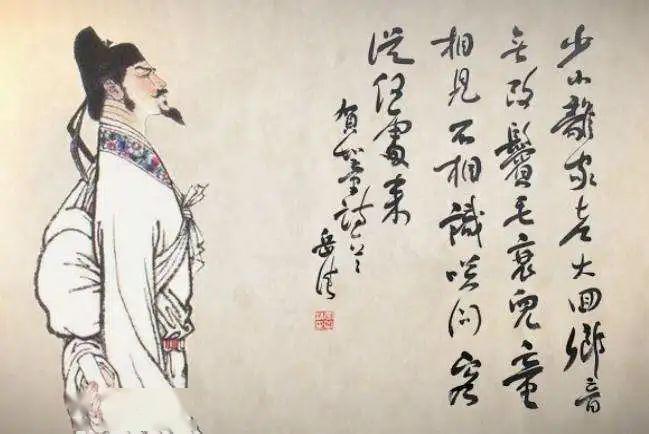 少小離家老大回鄉音
無改鬢毛衰兒童
相見不相識咲問客
從何處來
賀知章詩